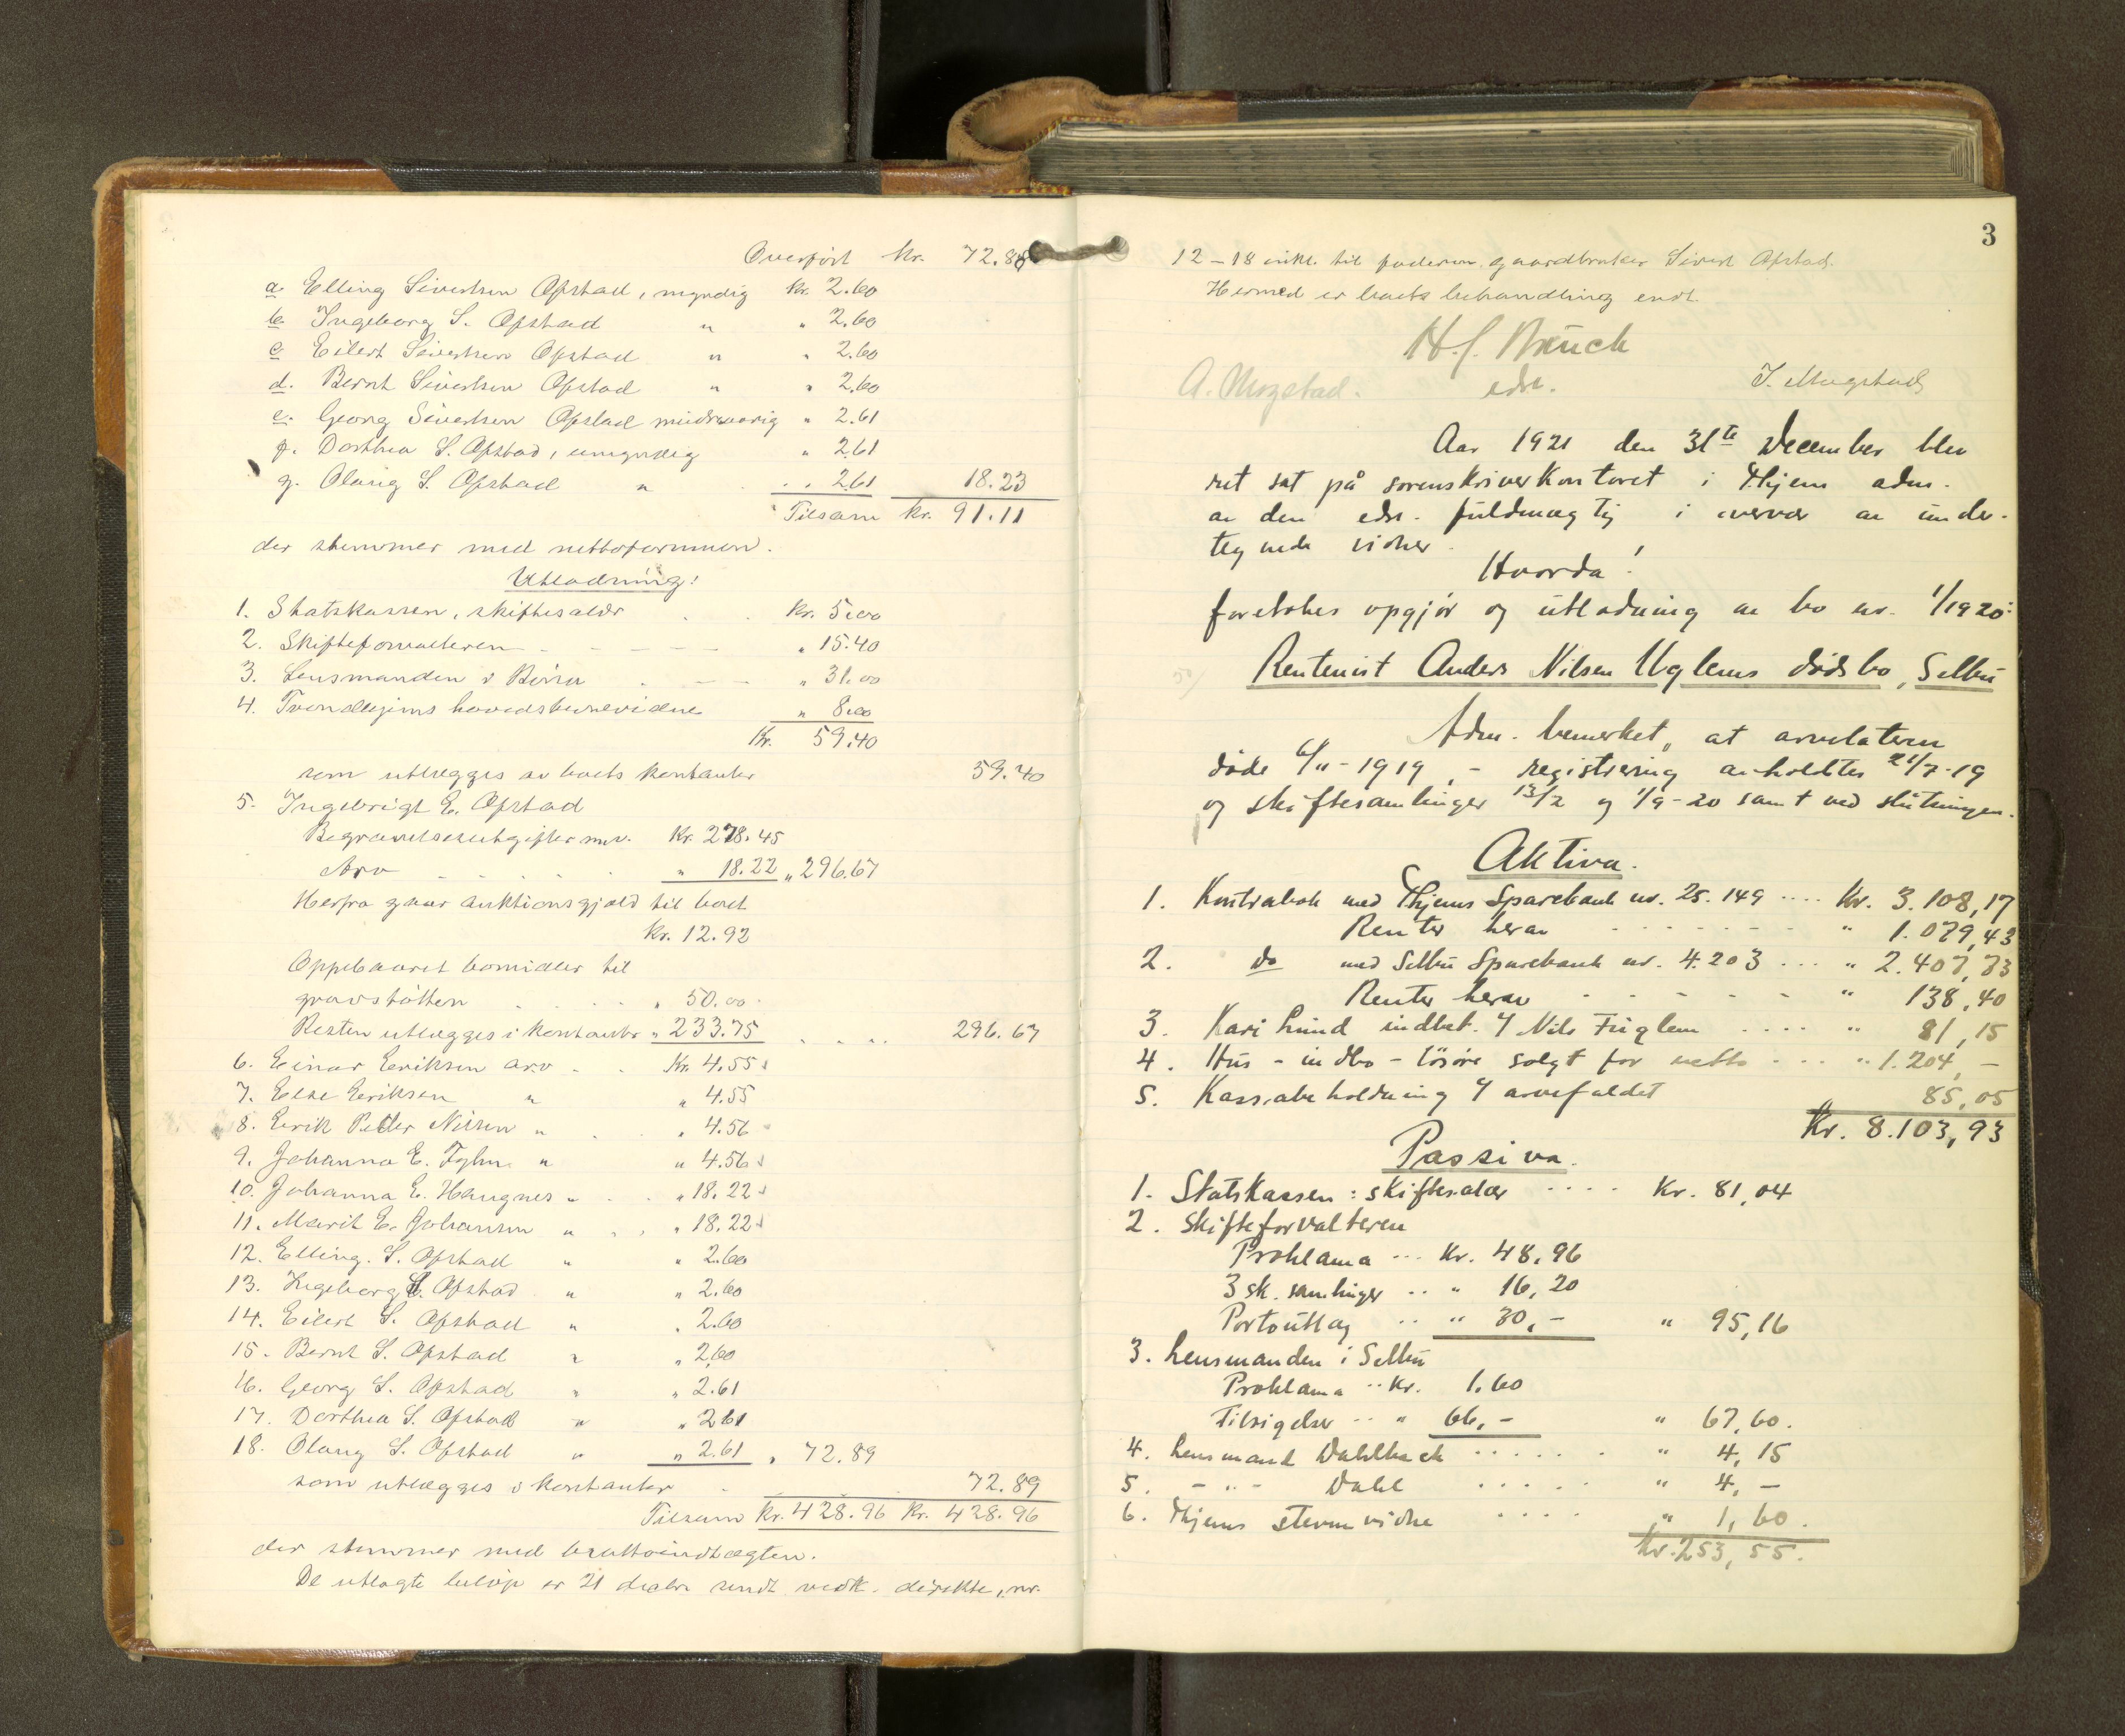 Overført kr. 72.88
a. Elling Sivertsen Opstad, myndig kr. 2.60
b. Ingeborg S. Opstad " " 2.60
c. Eilert Sivertsen Opstad " " 2.60
d. Bernt Sivertsen Opstad " " 2.60
e. Georg Sivertsen Opstad mindreaarig " 2.61
f. Dorthea S. Opstad, umyndig " 2.61
g. Olaug S. Opstad " " 2.61 18.23
Tilsam kr. 91.11
der stemmer med nettoformuen.
Utlodning:
1. Statskassen, skiftesalær kr. 5.00
2. Skifteforvalteren " 15.40
3. Lensmanden i " 31.00
4. Trondhjems hovedstevnevidne " 8.00
Kr. 59.40
som utlægges av boets kontanter 59.40
5. Ingebrigt E. Opstad
Begravelsesutgifter m.v. Kr. 278.45
Arv " 18.22 " 296.67
Herfra gaar auktionsgjæld til boet
Kr. 12.92
Oppebaaret bomidler til
gravstøtten " 50.00
Resten utlægges i kontanter " 233.75 296.67
6. Einar Eriksen arv Kr. 4.55
7. Else Eriksen " " 4.55
8. Erik Peder Nilsen " " 4.56
9. Johanna E. " " 4.56
10. Johanna E. Haugnes " " 18.22
11. Marit E. Johansen " " 18.22
12. Elling S. Opstad " " 2.60
13. Ingeborg S. Opstad " " 2.60
14. Eilert S. Opstad " " 2.60
15. Bernt S. Opstad " " 2.60
16. Georg S. Opstad " " 2.61
17. Dorthea S. Opstad " " 2.61
18. Olaug S. Opstad " " 2.61 " 72.89
som utlægges i kontanter 72.89
Tilsam Kr. 428.96 Kr. 428.96
der stemmer med bruttoindtægten.
De utlagte beløp er 21 decbr. sendt vedk. direkte, nr.
3
12-18 inkl. til faderen, gaardbruker Sivert Opstad.
Hermed er boets behandling endt.
edsv.
Aar 1921 den 31te December blev
ret sat på sorenskriverkontoret i Thjem adm.
av den edsv. fuldmægtig i overvær av under-
tegnede vidner.
Hvorda!
foretokes opgjør og utlodning av bo nr. 1/1920:
Rentenist Anders Nilsen Uglems dødsbo, Selbu
Adm. bemerket, at arvelateren
døde 6/11-1919, - registrering avholdtes 21/7-19
og skiftesamlinger 13/2 og 1/9-20 samt ved slutningen.
Aktiva.
1. Kontrabok med Thjems Sparebank nr. 25.149 .... Kr. 3.108,17
Renter herav " 1.079,43
2. do med Selbu Sparebank nr. 4.203 ... " 2.407,73
Renter herav " 138,40
3. Kari Lund indbet. f Nils Fuglem .... " 81,15
4. Hus - indbo - løsøre solgt for netto ... " 1.204,-
5. Kassabeholdning f arvefaldet 85,05
Kr. 8.103,93
Passiva.
1. Statskassen: skiftesalær .... Kr. 81,04
2. Skifteforvalteren
Proklama ... Kr. 48,96
3 sk. samlinger .. " 16,20
Portoutlag .. " 30,- " 95,16
3. Lensmanden i Selbu
Proklama .. Kr. 1,60
Tilsigelser .. " 66,- " 67,60.
4. Lensmand Dahlback ..... " 4,15
5. - " - Dahl ..... " 4,-
6. Thjems stevnevidne .... " 1,60.
Kr. 253,55.